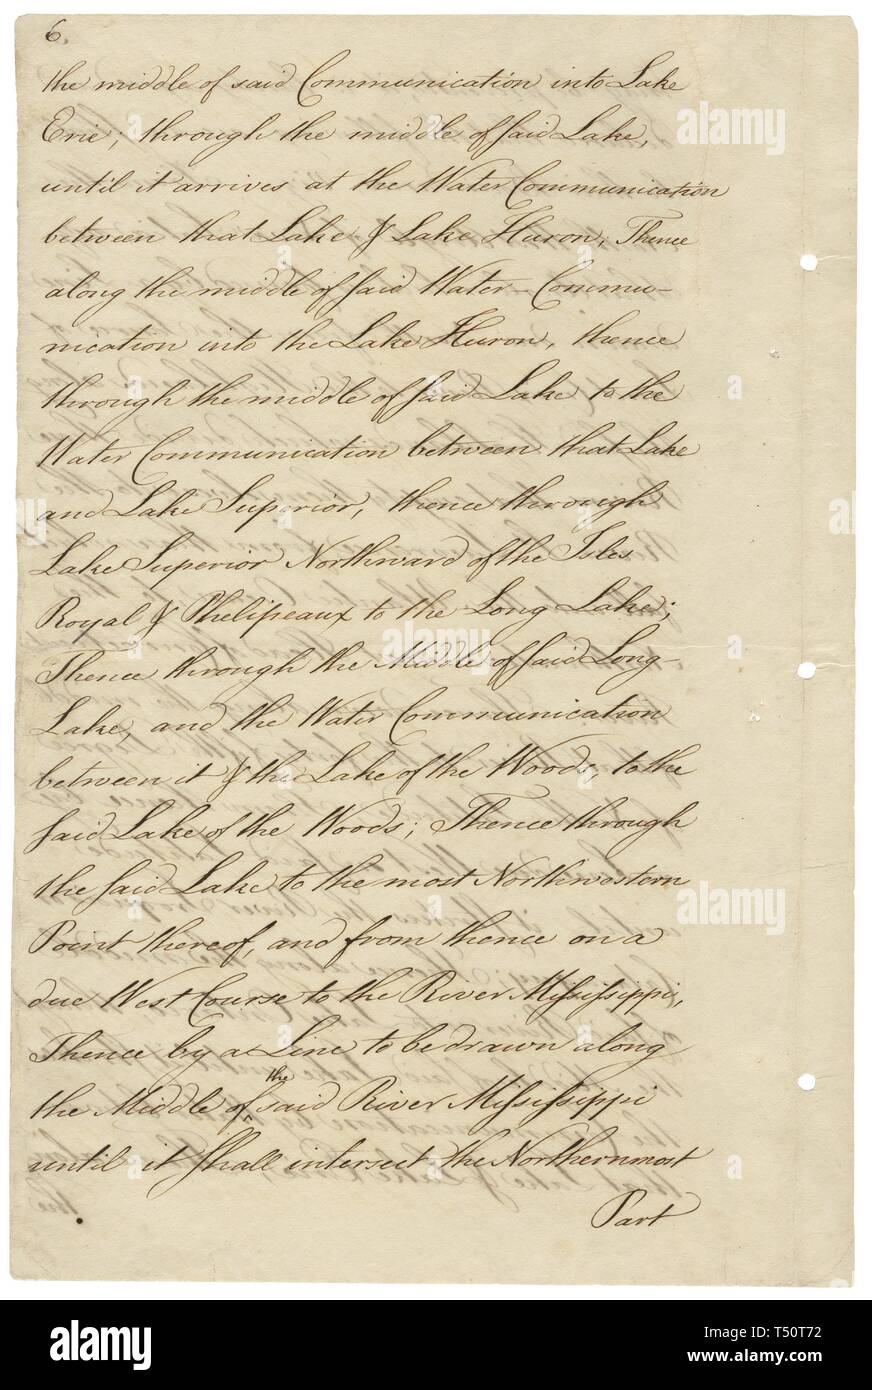 6.
the middle of said Communication into Lake
Erie; through the middle of said Lake,
until it arrives at the Water Communication
between that Lake & Lake Huron; Thence
along the middle of said Water-Commu-
nication into the Lake Huron, thence
through the middle of said Lake to the
Water Communication between that Lake
and Lake Superior, thence through
Lake Superior Northward of the Isles
Royal & Phelipeaux to the Long Lake;
Thence through the Middle of said Long-
Lake, and the Water Communication
between it & the Lake of the Woods, to the
said Lake of the Woods; Thence through
the said Lake to the most Northwestern
Point thereof, and from thence on a
due West Course to the River Mississippi,
Thence by a Line to be drawn along
the Middle of the said River Mississippi
until it shall intersect the Northernmost
Part
alamy
alamy
alamy
a
a
a
a
a
a
alamy
Image ID: T50T72
www.alamy.com